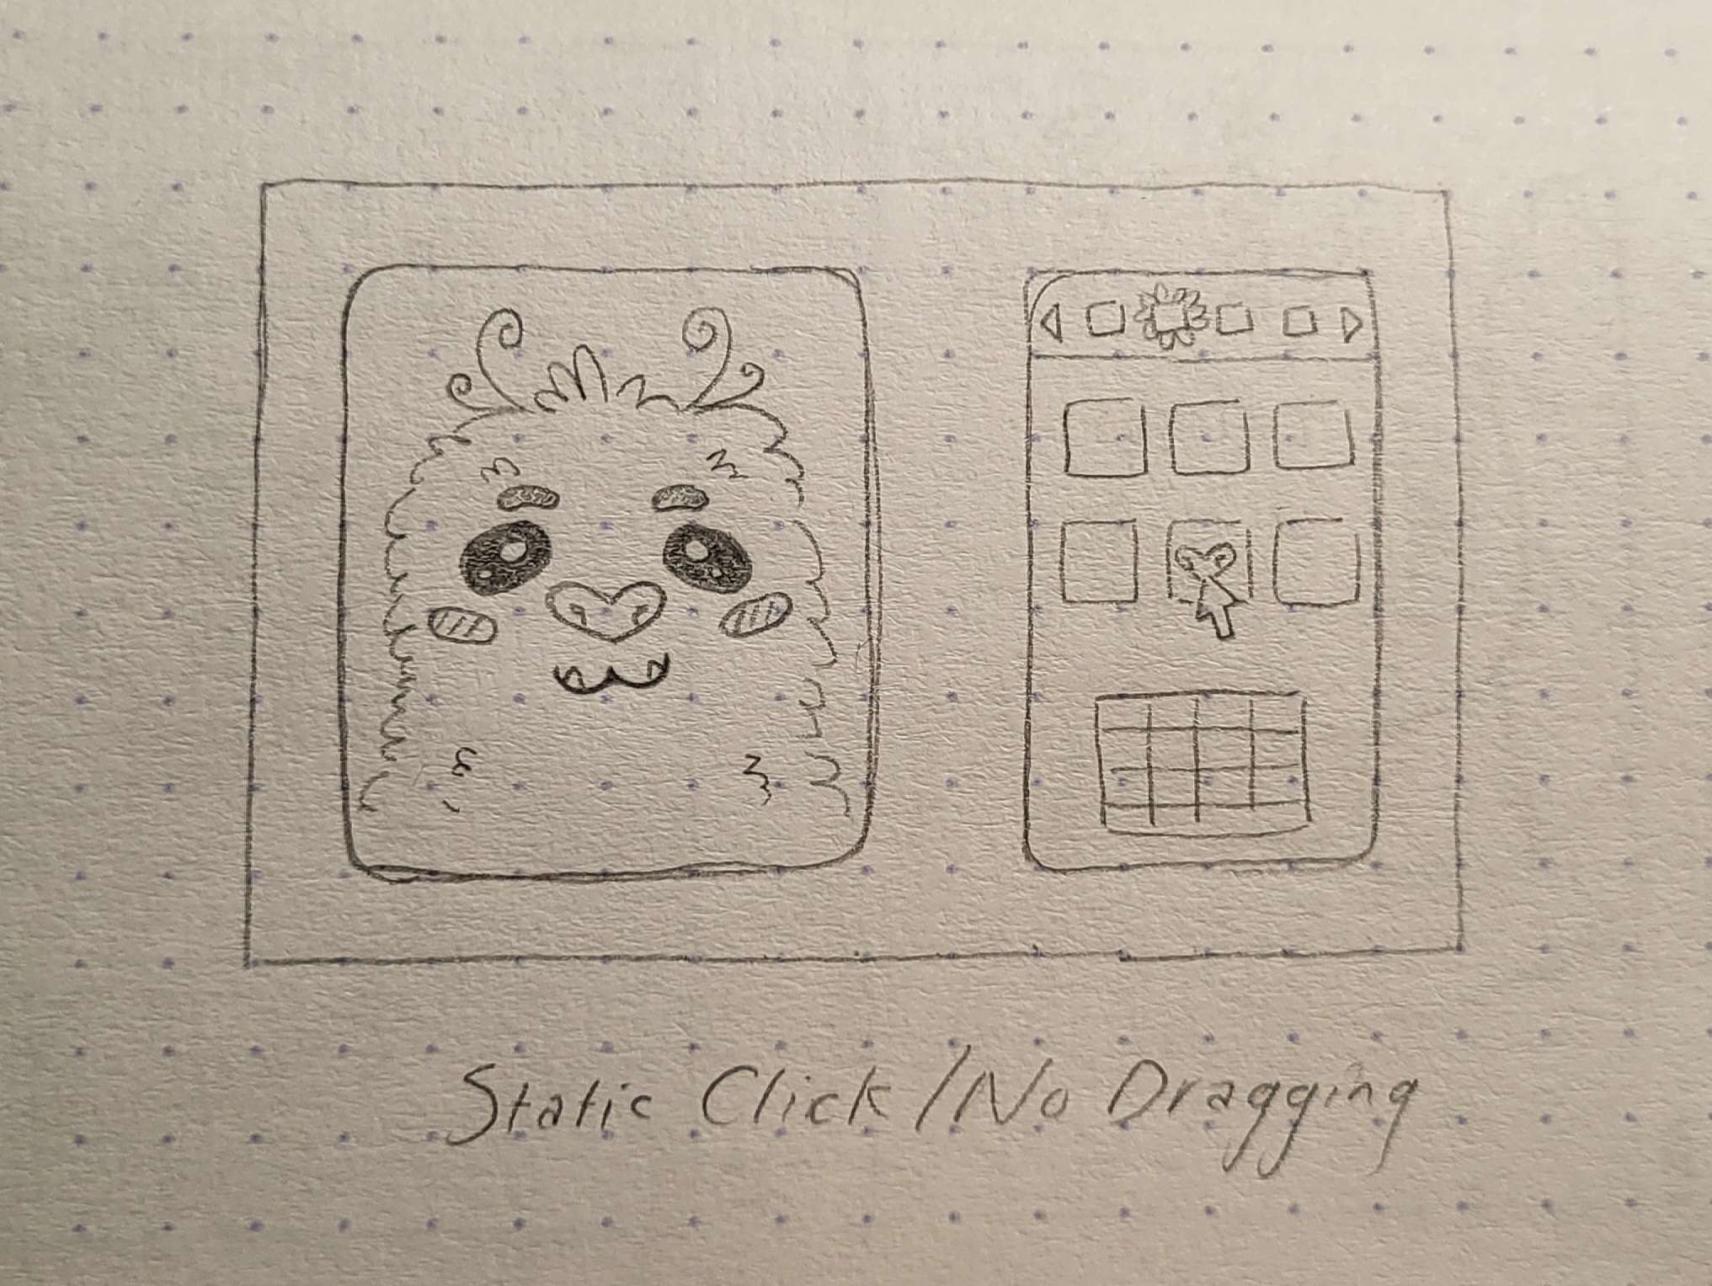 Static Click/No Dragging